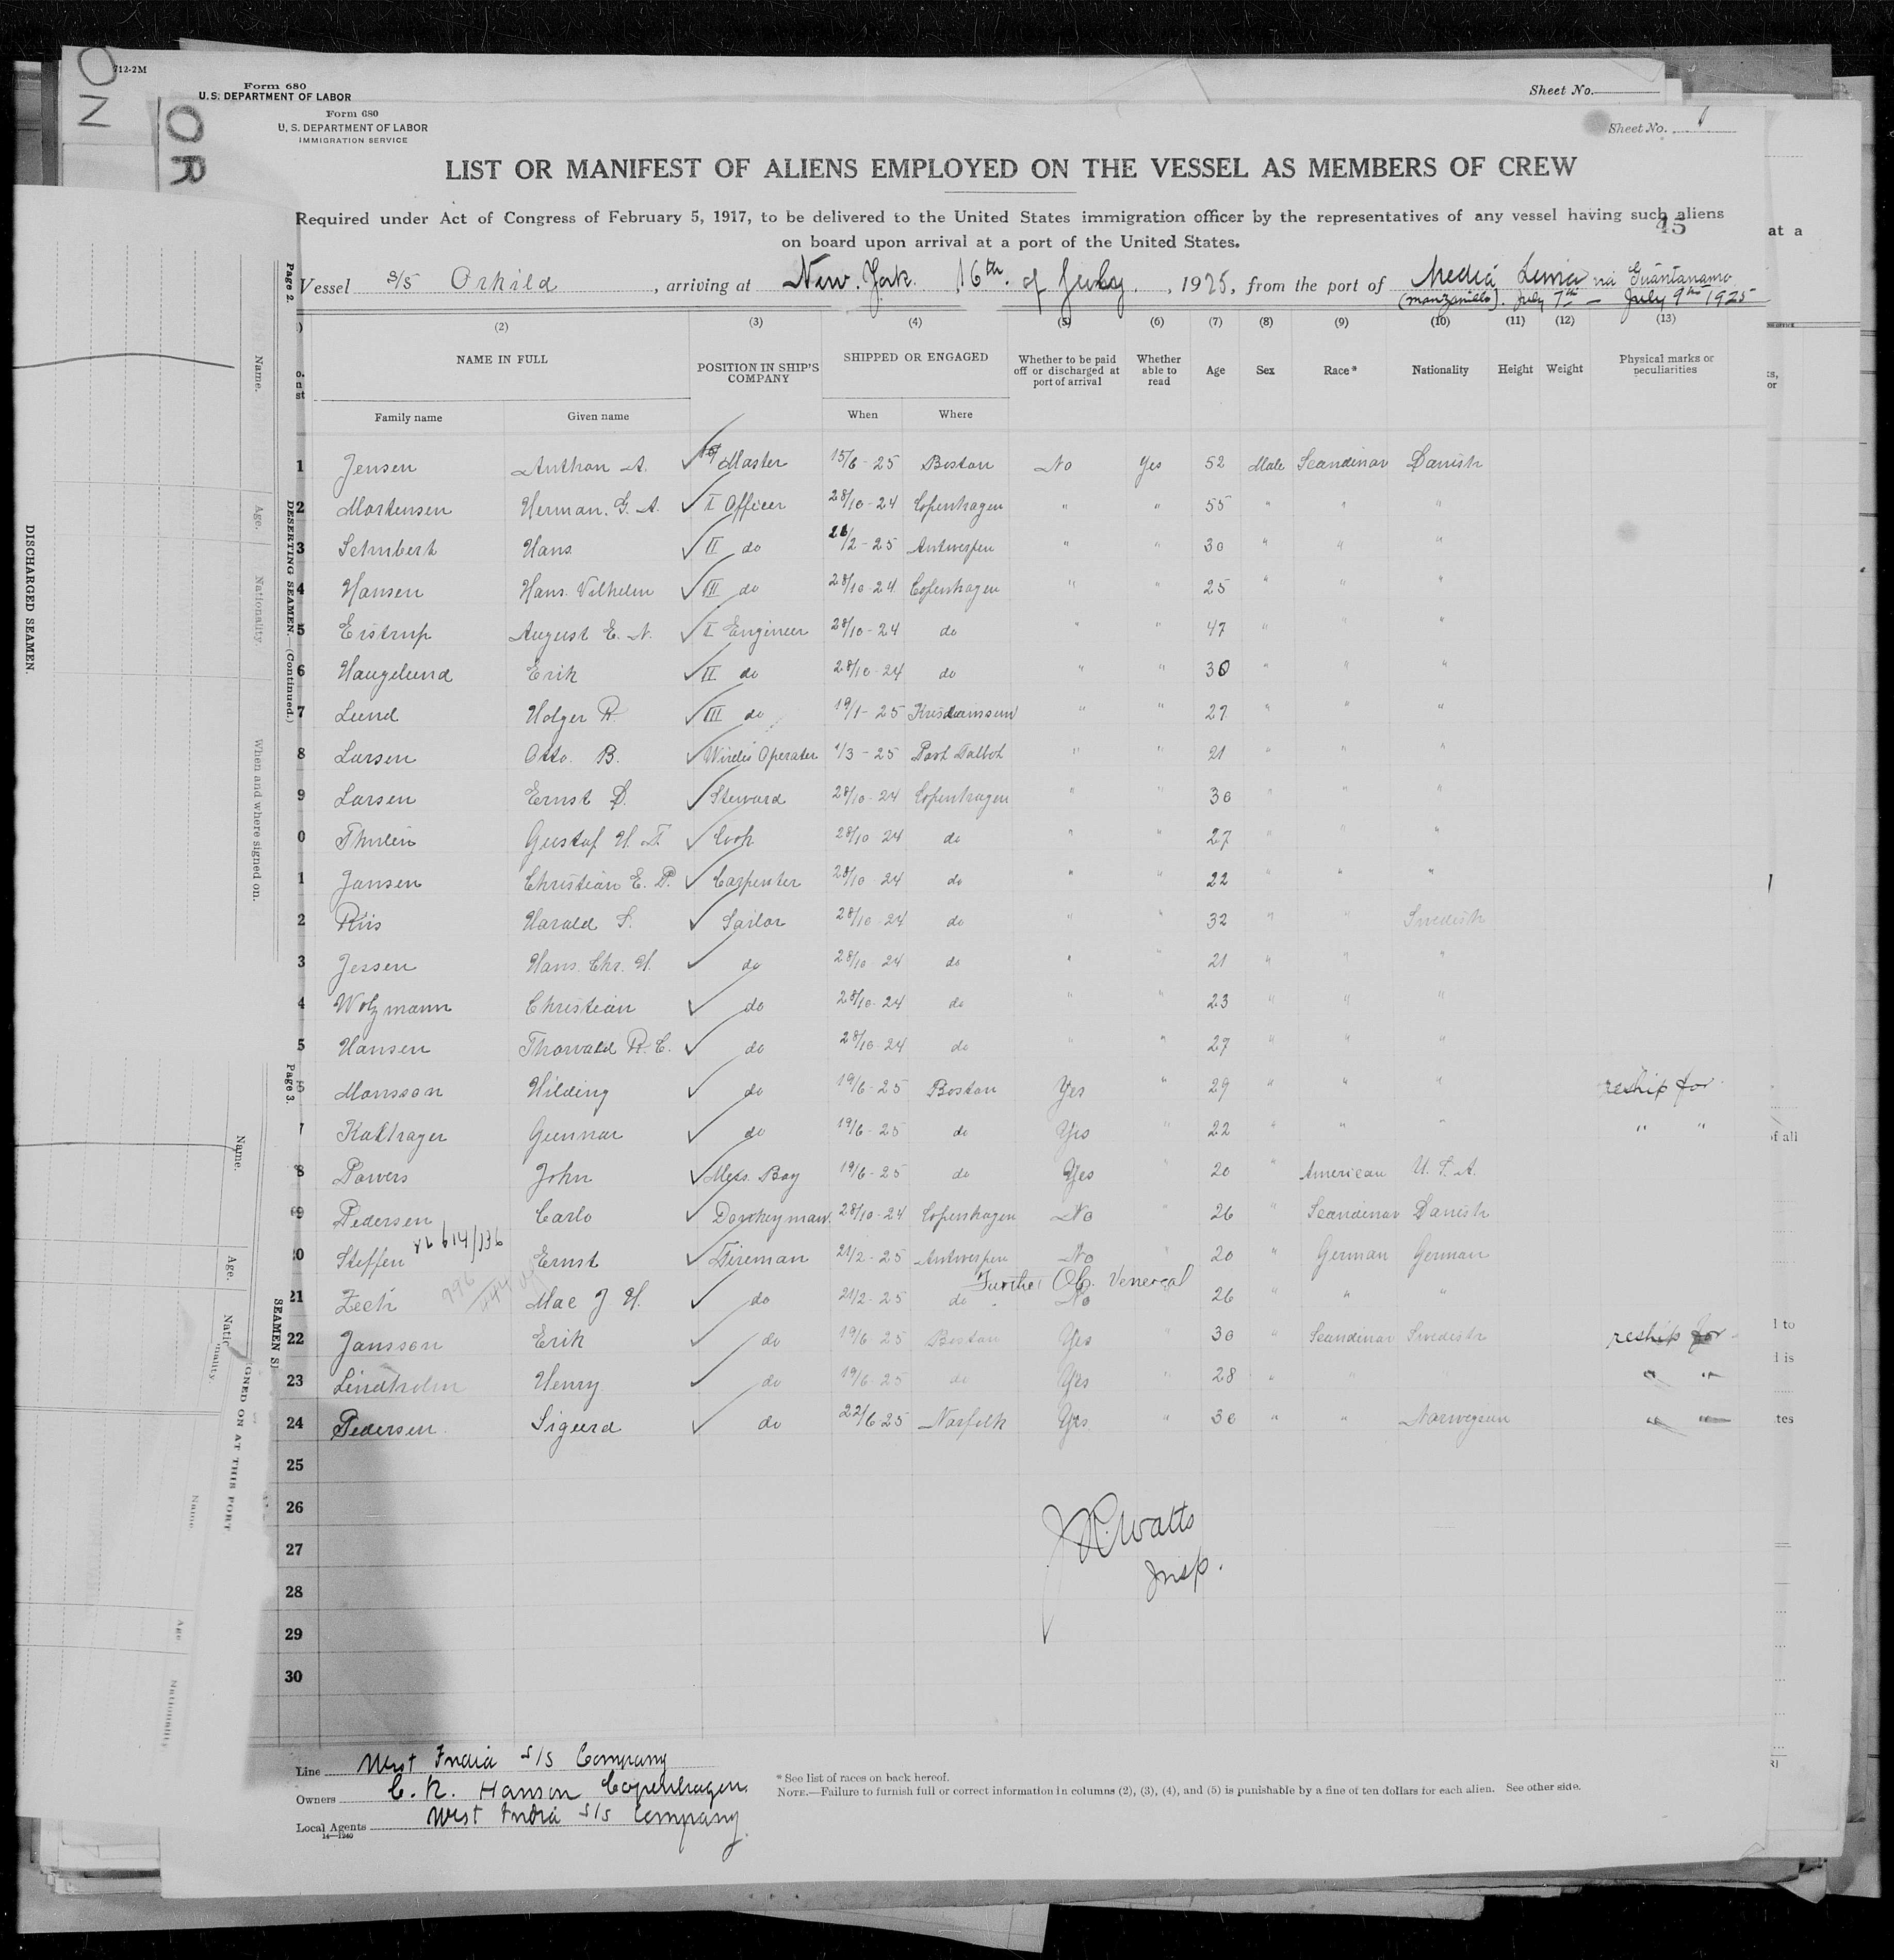 712-2M
Form 680
U. S. DEPARTMENT OF LABOR
Sheet No.
NO
OR
Form 680
U. S. DEPARTMENT OF LABOR
IMMIGRATION SERVICE
Sheet No. 1
LIST OR MANIFEST OF ALIENS EMPLOYED ON THE VESSEL AS MEMBERS OF CREW
Required under Act of Congress of February 5, 1917, to be delivered to the United States immigration officer by the representatives of any vessel having such aliens
on board upon arrival at a port of the United States.
45
at a
Vessel S/S Orkild, arriving at New York. 16th. of July, 1925, from the port of Media Luna via Guantanamo
(Manzanillo). July 7th — July 9th 1925
(2) (3) (4) (5) (6) (7) (8) (9) (10) (11) (12) (13)
NAME IN FULL POSITION IN SHIP'S COMPANY SHIPPED OR ENGAGED Whether to be paid off or discharged at port of arrival Whether able to read Age Sex Race* Nationality Height Weight Physical marks or peculiarities
Family name Given name When Where
1 Jensen Anthon A. Master 15/6-25 Boston No Yes 52 Male Scandinav Danish
2 Mortensen Herman. G. A. I Officer 28/10-24 Copenhagen " " 55 " " "
3 Schubert Hans II do 2-25 Antwerpen " " 30 " " "
4 Hansen Hans. Vilhelm III do 28/10-24 Copenhagen " " 25 " " "
5 Eistrup August E. N. I Engineer 28/10-24 do " " 47 " " "
6 Haugelund Erik II do 28/10-24 do " " 30 " " "
7 Lund Holger R. III do 19/1-25 " " 27 " " "
8 Larsen Otto. B. Wireles Operater 1/3-25 Port Talbot " " 21 " " "
9 Larsen Ernst D. Steward 28/10-24 Copenhagen " " 30 " " "
0 Thulin Gustaf H. T. Cook 28/10 24 do " " 27 " " "
1 Jansen Christian E. P. Carpenter 28/10-24 do " " 22 " " "
2 Riis Harald S. Sailor 28/10-24 do " " 32 " " Swedish
3 Jessen Hans. Chr. H. do 28/10-24 do " " 21 " " "
4 Wolzmann Christian do 28/10-24 do " " 23 " " "
5 Hansen Thorvald R. C. do 28/10-24 do " " 27 " " "
6 Monsson Hilding do 19/6-25 Boston Yes " 29 " " " reship for
7 Kathager Gunnar do 19/6-25 do Yes " 22 " " " " "
8 Powers John Mess. Boy 19/6-25 do Yes " 20 " American U. S. A.
9 Pedersen Carlo Donkeyman. 28/10-24 Copenhagen No " 26 " Scandinav Danish
20 Steffen Ernst Fireman 21/2-25 Antwerpen No " 20 " German German
Further Ob. Venereal
21 Zech Max J H. do 21/2-25 do No 26 " " "
22 Jansson Erik do 19/6-25 Boston Yes " 30 " Scandinav Swedish reship for
23 Lindholm Henry do 19/6-25 do Yes " 28 " " " "
24 Pedersen Sigurd do 22/6-25 Norfolk Yes " 30 " " Norwegian " "
25
26
27
28
29
30
J R. Watts
Insp.
Line West India S/S Company
Owners C. K. Hansen Copenhagen
Local Agents West India S/S Company.
14—1240
* See list of races on back hereof.
NOTE.—Failure to furnish full or correct information in columns (2), (3), (4), and (5) is punishable by a fine of ten dollars for each alien. See other side.
DISCHARGED SEAMEN.
Page 2.
DESERTING SEAMEN.—(Continued.)
Name.
Age.
Nationality
When and where signed on.
Page 3.
Name.
Age.
Nationality.
Name
Age
Nationality
of all